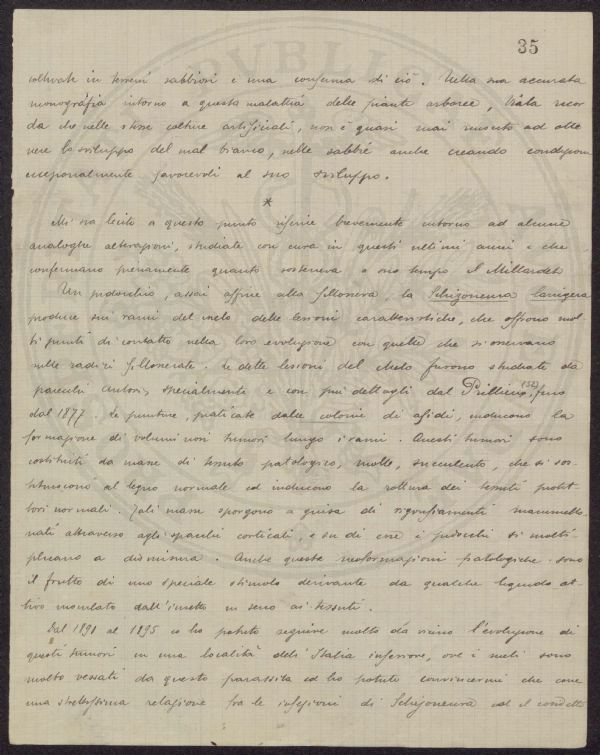 35
coltivate in terreni sabbiosi è una conferma di ciò. Nella sua accurata
monografia intorno a questa malattia delle piante arboree, Viala ricor
da che nelle stesse colture artificiali, non è quasi mai riuscito ad otte
nere lo sviluppo del mal bianco, nelle sabbie anche creando condizioni
eccezionalmente favorevoli al suo sviluppo.
*
Mi sia lecito a questo punto riferire brevemente intorno ad alcune
analoghe alterazioni, studiate con cura in questi ultimi anni e che
confermano pienamente quanto sosteneva a suo tempo il Millardet
Un pidocchio, assai affine alla fillossera, la Schizoneura lanigera
produce sui rami del melo delle lesioni caratteristiche, che offrono mol
ti punti di contatto nella loro evoluzione con quelle che si osservano
sulle radici fillosserate. Le dette lesioni del Melo furono studiate da
parecchi autori, specialmente e con più dettagli dal Prillieux (52), fino
dal 1877. Le punture, praticate dalle colonie di afidi, inducono la
formazione di voluminosi tumori lungo i rami. Questi tumori sono
costituiti da masse di tessuto patologico, molle, succulento, che si sos
tituiscono al legno normale ed inducono la rottura dei tessuti protet
tori normali. Tali masse sporgono a guisa di rigonfiamenti mammello
nati attraverso agli spacchi corticali, e su di esse i pidocchi si molti
plicano a dismisura. Anche queste neoformazioni patologiche sono
il frutto di uno speciale stimolo derivante da qualche liquido at
tivo inoculato dall'insetto in seno ai tessuti.
Dal 1891 al 1895 io ho potuto seguire molto da vicino l'evoluzione di
questi tumori in una località dell'Italia inferiore, ove i meli sono
molto vessati da questo parassita ed ho potuto convincermi che corre
una strettissima relazione fra le infezioni di Schizoneura ed il condetto
PVBLI